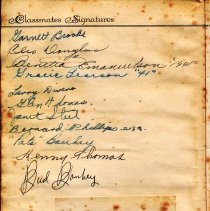 Classmates Signatures
Garnett Brooks
Cleo Douglas
Emanuelson "44"
Gracie Pearson "41"
Larry Owens
Glen H. Jones
Janet Steel
Bernard Phillips
"Pete" Bauhey
Kenny Thomas
Bud Bauhey